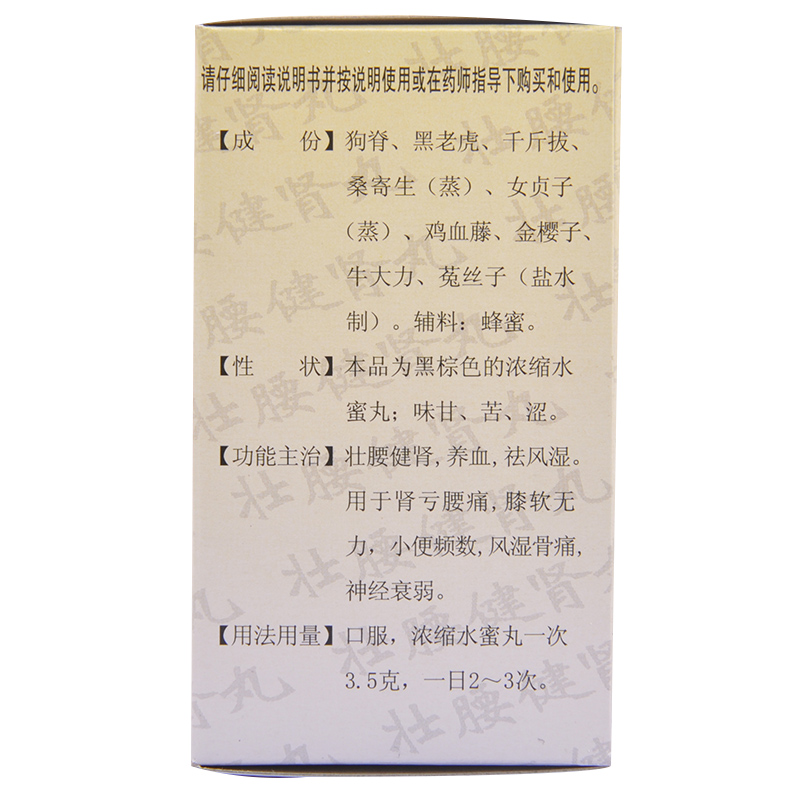 请仔细阅读说明书并按说明使用或在药师指导下购买和使用。
【成　　份】狗脊、黑老虎、千斤拔、
桑寄生（蒸）、女贞子
（蒸）、鸡血藤、金樱子、
牛大力、菟丝子（盐水
制）。辅料：蜂蜜。
【性　　状】本品为黑棕色的浓缩水
蜜丸；味甘、苦、涩。
【功能主治】壮腰健肾，养血，祛风湿。
用于肾亏腰痛，膝软无
力，小便频数，风湿骨痛，
神经衰弱。
【用法用量】口服，浓缩水蜜丸一次
3.5克，一日2～3次。
壮腰健肾丸